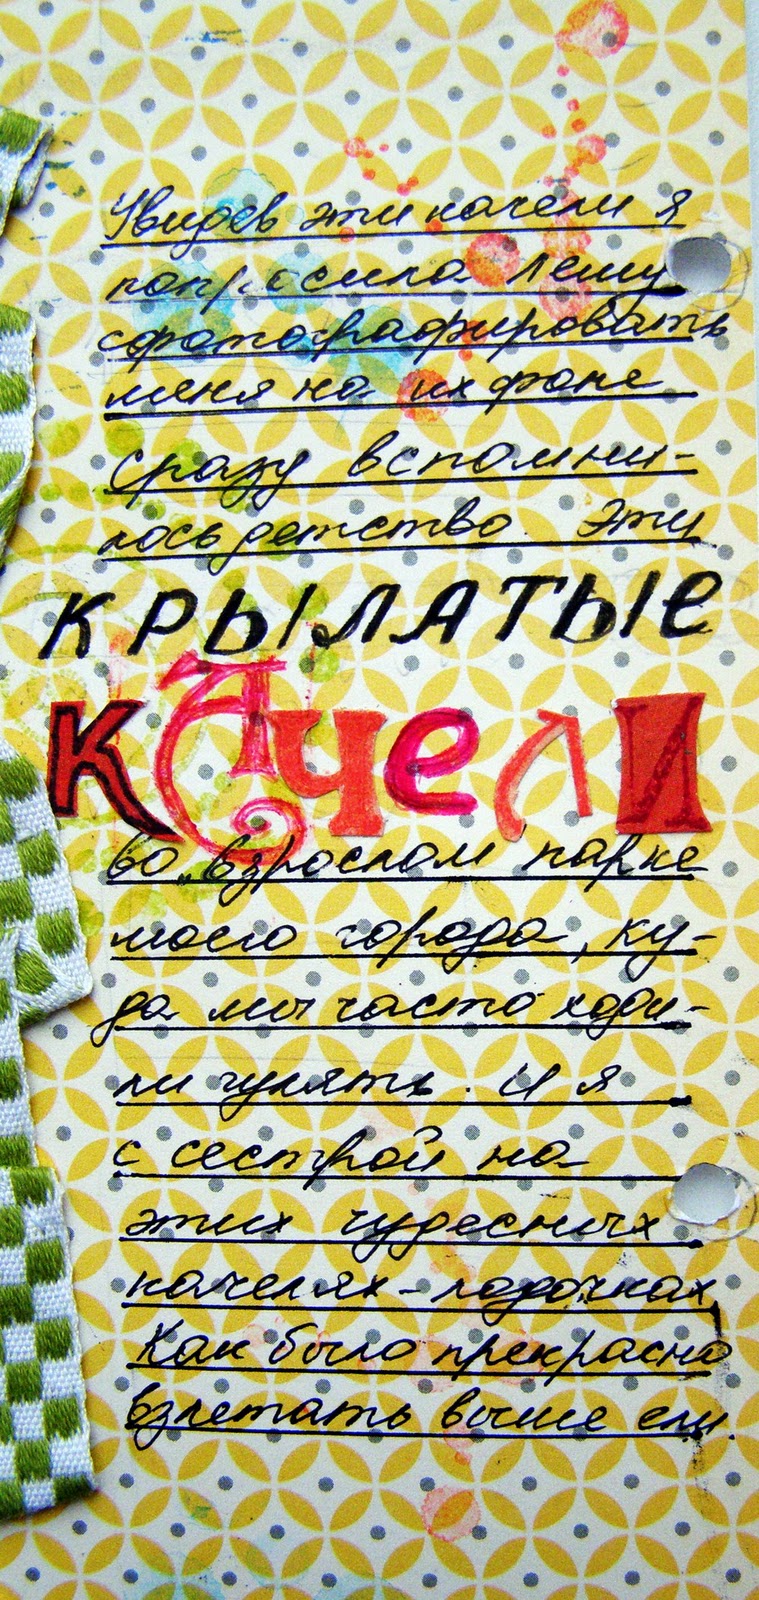 Увидев эти качели я
попросила Лешу
сфотографировать
меня на их фоне
Сразу вспомни-
лось детство. Эти
КРЫЛАТЫЕ
КАЧЕЛИ
во „взрослом" парке
моего города, ку-
да мы часто ходи-
ли гулять. И я
с сестрой на
этих чудесных
качелях-лодочках
Как было прекрасно
взлетать выше ели.